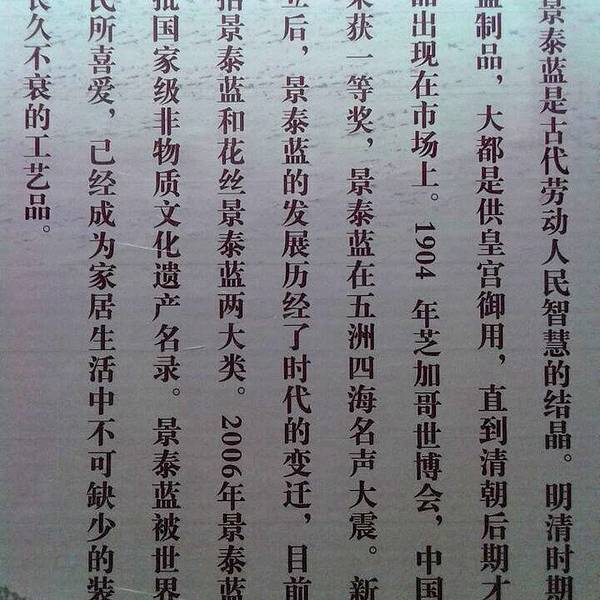 景泰蓝是古代劳动人民智慧的结晶。明清时期
蓝制品，大都是供皇宫御用，直到清朝后期才
品出现在市场上。1904 年芝加哥世博会，中国
荣获一等奖，景泰蓝在五洲四海名声大震。新
立后，景泰蓝的发展历经了时代的变迁，目前
括景泰蓝和花丝景泰蓝两大类。2006年景泰蓝
批国家级非物质文化遗产名录。景泰蓝被世界
民所喜爱，已经成为家居生活中不可缺少的装
长久不衰的工艺品。